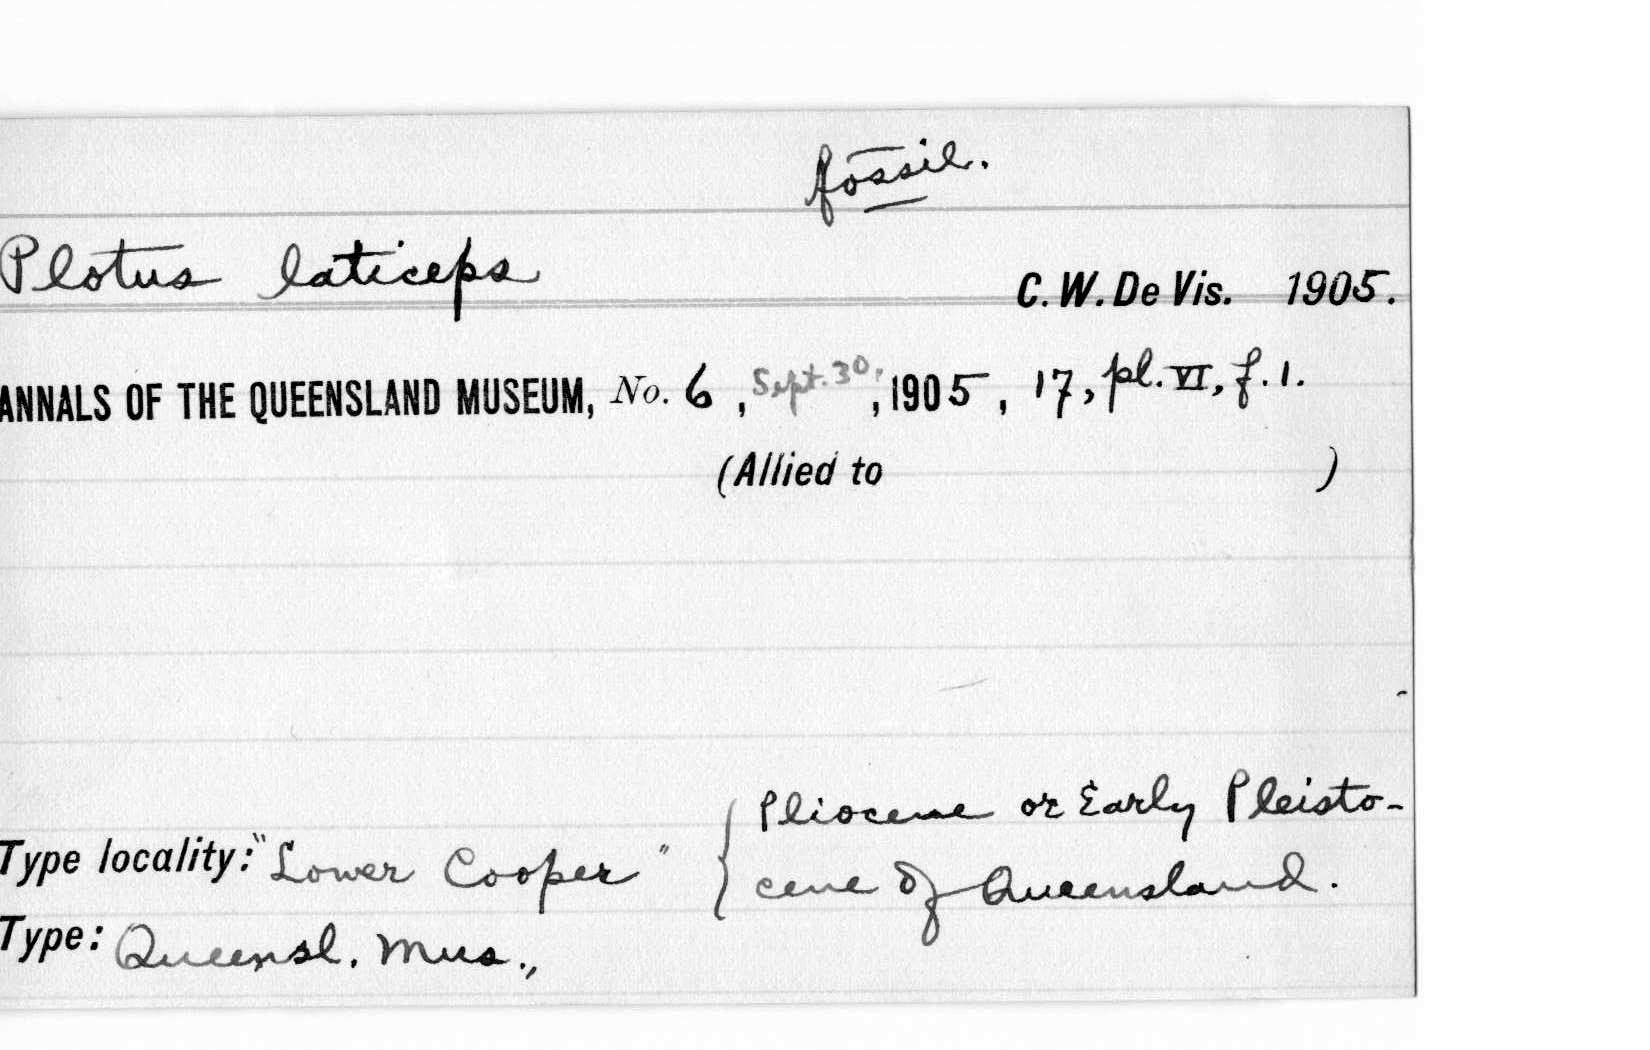 fossil.
Plotus laticeps C. W. De Vis. 1905.
ANNALS OF THE QUEENSLAND MUSEUM, No. 6, Sept. 30, , 1905, 17, pl. VI, f. 1.
(Allied to )
Pliocene or Early Pleisto-
Type locality: "Lower Cooper" { cene of Queensland.
Type: Queensl. Mus.,